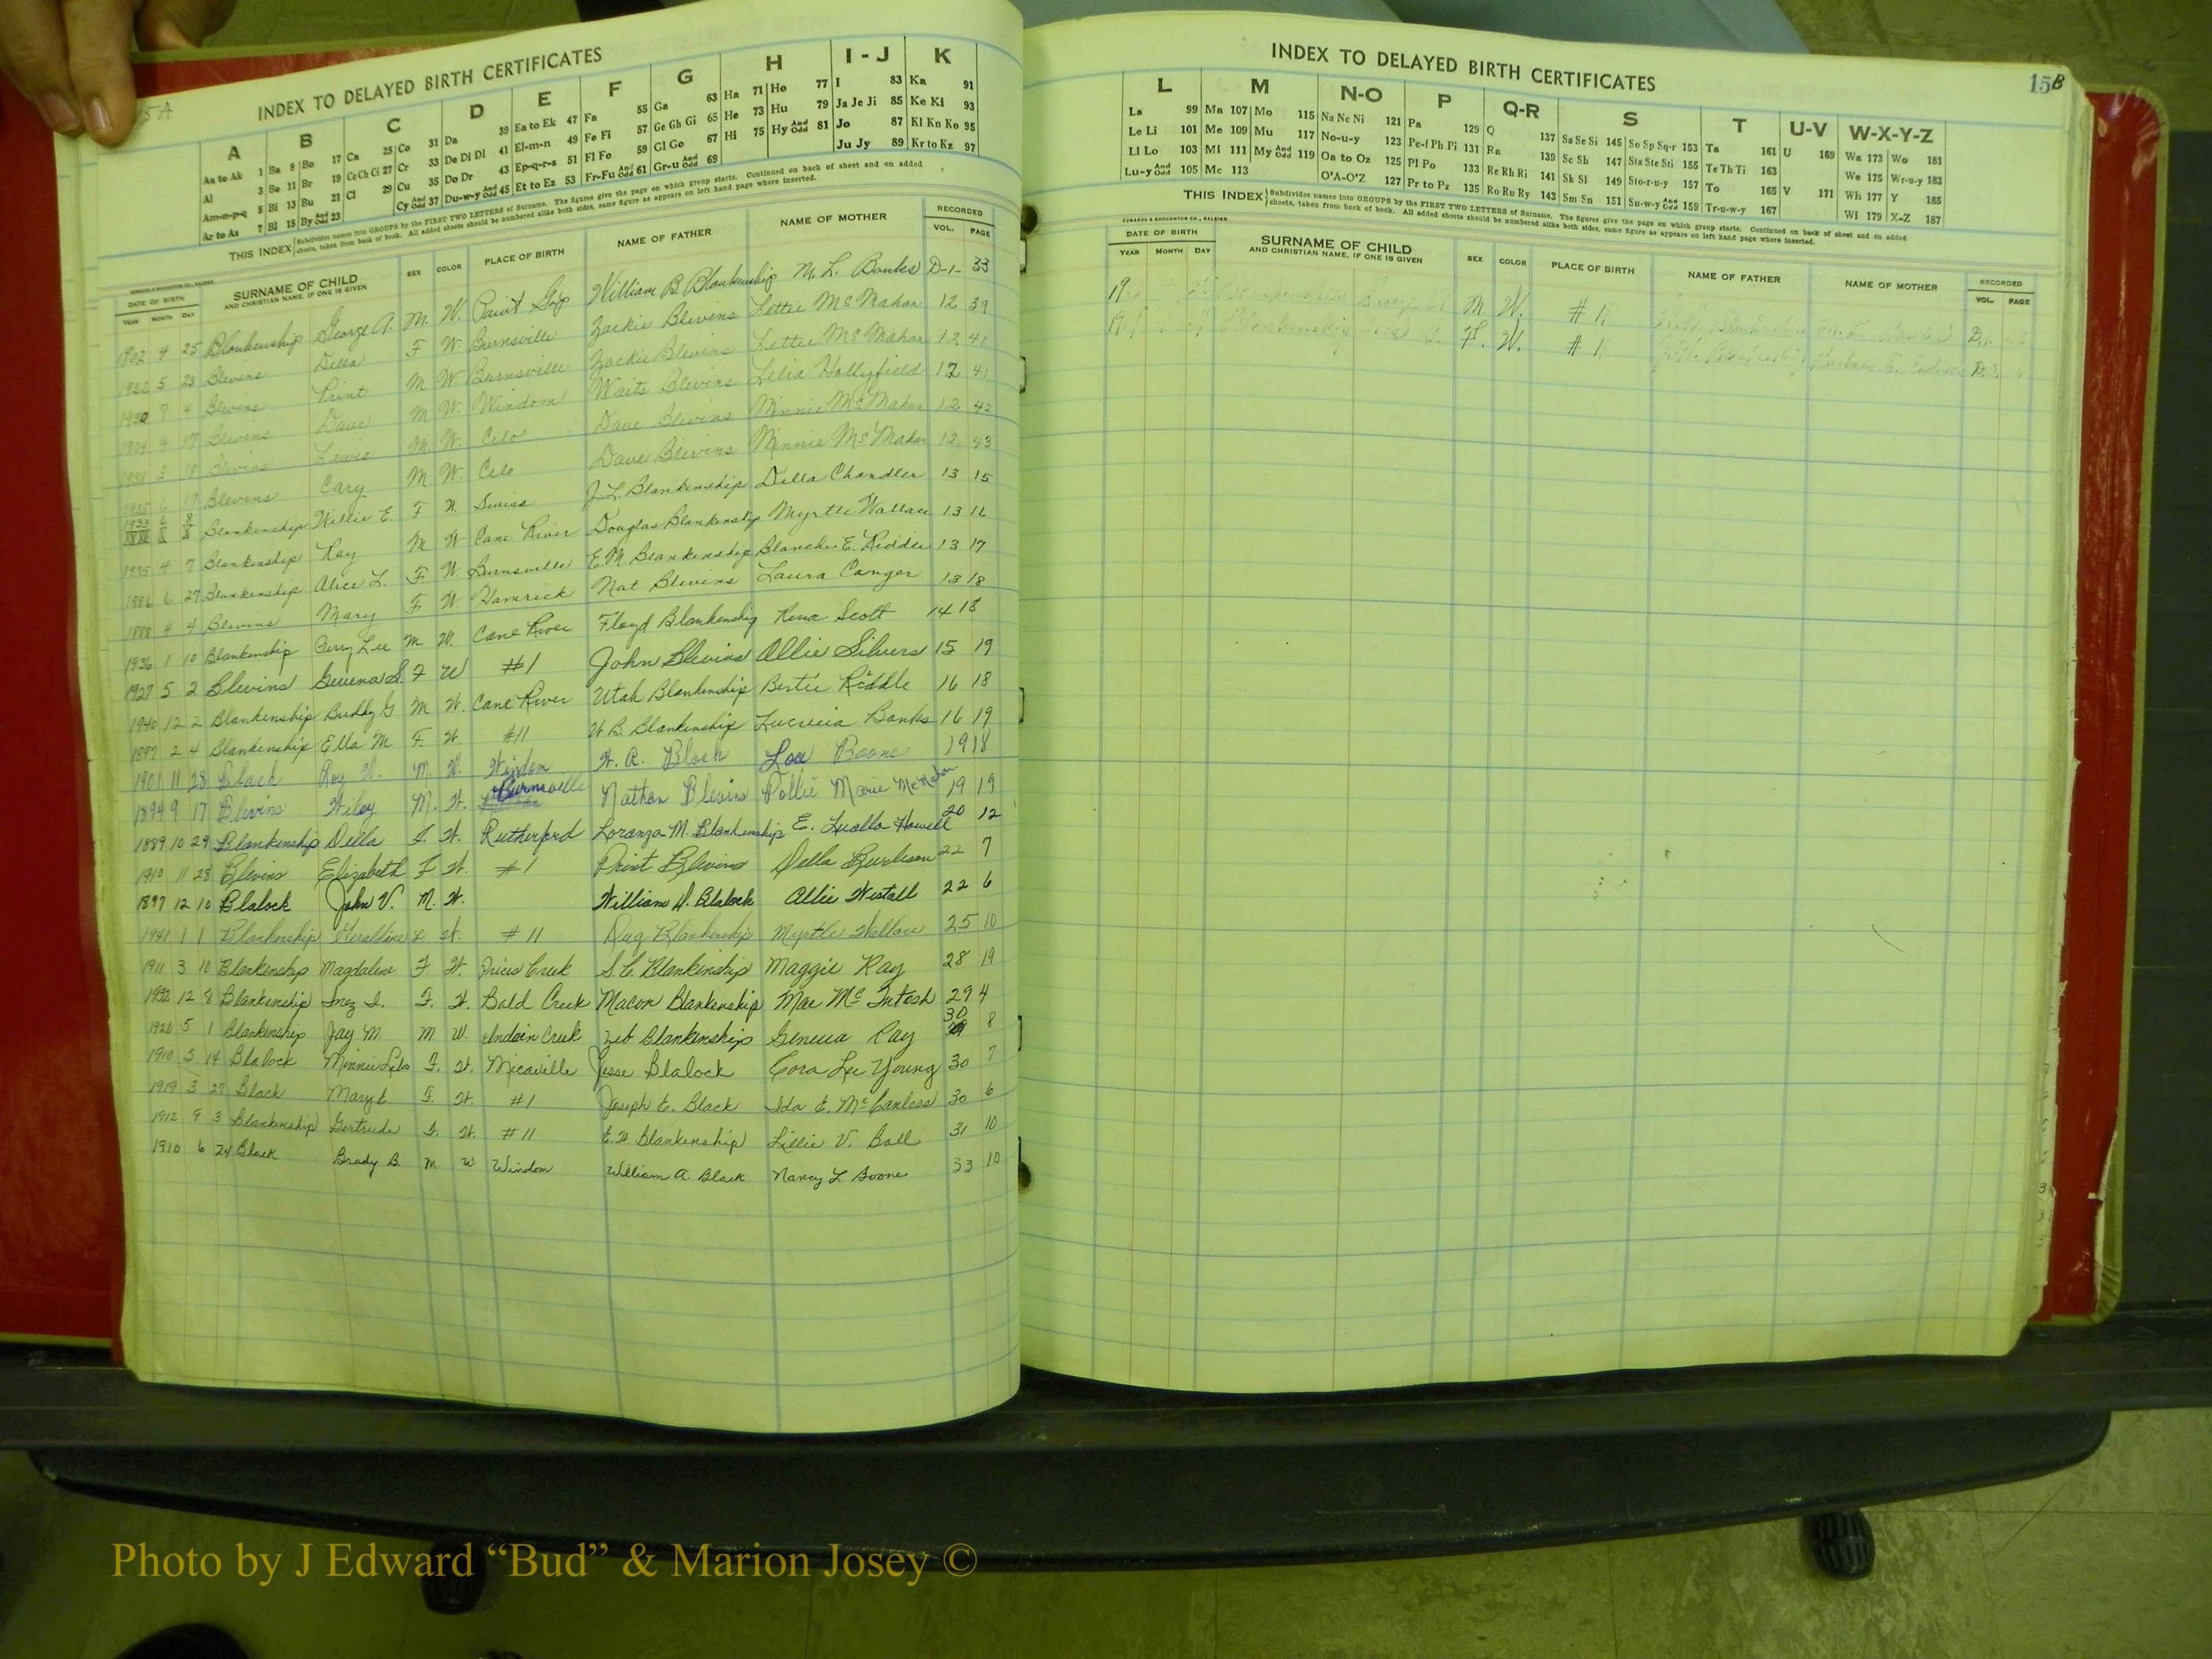 INDEX TO DELAYED BIRTH CERTIFICATES
A B C D E F G H I - J K
Aa to Ak 1 Ba 9 Bo 17 Ca 25 Co 31 Da 39 Ea to Ek 47 Fa 55 Ga 63 Ha 71 Ho 77 I 83 Ka 91
Al 3 Be 11 Br 19 Ce Ch Ci 27 Cr 33 De Di Dl 41 El-m-n 49 Fe Fi 57 Ge Gh Gi 65 He 73 Hu 79 Ja Je Ji 85 Ke Ki 93
Am-n-p-q 5 Bi 13 Bu 21 Cl 29 Cu 35 Do Dr 43 Ep-q-r-s 51 Fl Fo 59 Gl Go 67 Hi 75 Hy And Odd 81 Jo 87 Kl Kn Ko 95
Ar to Az 7 Bl 15 By And Odd 23 Cy And Odd 37 Du-w-y And Odd 45 Et to Ez 53 Fr-Fu And Odd 61 Gr-u And Odd 69 Ju Jy 89 Kr to Kz 97
THIS INDEX Subdivides names into GROUPS by the FIRST TWO LETTERS of Surname. The figures give the page on which group starts. Continued on back of sheet and on added
sheets, taken from back of book. All added sheets should be numbered alike both sides, same figure as appears on left hand page where inserted.
DATE OF BIRTH SURNAME OF CHILD SEX COLOR PLACE OF BIRTH NAME OF FATHER NAME OF MOTHER RECORDED
YEAR MONTH DAY AND CHRISTIAN NAME, IF ONE IS GIVEN VOL. PAGE
1902 4 25 Blankenship George A. M. W. Paint Gap William B. Blankenship M. L. Banks D-1- 33
1932 5 23 Blevins Della F W. Burnsville Zackie Blevins Lettie McMahan 12 39
1930 7 4 Blevins Print M W Burnsville Zackie Blevins Lettie McMahan 12 41
1904 4 17 Blevins Dave M W. Windom Waits Blevins Lelia Hollyfield 12 41
1938 3 18 Blevins Lewis M W. Celo Dave Blevins Minnie McMahan 12 42
1935 6 19 Blevins Cary M W. Celo Dave Blevins Minnie McMahan 12 43
1933 6 8 Blankenship Willie E. F W. Swiss J. L. Blankenship Della Chandler 13 15
1935 4 7 Blankenship Ray M W Cane River Douglas Blankenship Myrtle Wallace 13 16
1886 6 27 Blankenship Alice L. F W. Burnsville E. M. Blankenship Blanche E. Riddle 13 17
1888 4 4 Blevins Mary F W. Hamrick Nat Blevins Laura Conger 13 18
1936 1 10 Blankenship Perry Lee M W. Cane River Floyd Blankenship Rena Scott 14 18
1927 5 2 Blevins S. F W #1 John Blevins Allie Silvers 15 19
1940 12 2 Blankenship Buddy G M W. Cane River Utah Blankenship Bertie Riddle 16 18
1897 2 4 Blankenship Ella M F. W #11 W B. Blankenship Lucrecia Banks 16 19
1901 11 28 Black Roy W. M. W. Windom W. A. Black Loa Boone 19 18
1894 9 17 Blevins Wiley M. W. Burnsville Nathan Blevins Pollie Marie McMahan 19 19
1889 10 29 Blankenship Della F. W. Rutherford Loranza M. Blankenship E. Luella Howell 20 12
1910 11 28 Blevins Elizabeth F W. #1 Print Blevins Della Burleson 22 7
1897 12 10 Blalock John V. M. W. William D. Blalock Allie Westall 22 6
1941 1 1 Blankenship Geraldine F W. #11 Dug Blankenship Myrtle Wallace 25 10
1911 3 10 Blankenship Magdalene F W. Prices Creek S. C. Blankenship Maggie Ray 28 19
12 8 Blankenship Inez I. F. W. Bald Creek Macon Blankenship Mae McIntosh 29 4
1920 5 1 Blankenship Jay M. M W. Indain Creek Zeb Blankenship Geneva Ray 30 8
1910 5 14 Blalock Minnie F. W. Micaville Jesse Blalock Cora Lee Young 30 7
1919 3 27 Black Mary E. F. W. #1 Joseph E. Black Ida E. McCanless 30 6
1912 9 3 Blankenship Gertrude F. W. #11 E. W. Blankenship Lillie V. Ball 31 10
1910 6 24 Black Brady B. M. W Windom William A. Black Nancy L Boone 33 10
15B
INDEX TO DELAYED BIRTH CERTIFICATES
L M N-O P Q-R S T U-V W-X-Y-Z
La 99 Ma 107 Mo 115 Na Ne Ni 121 Pa 129 Q 137 Sa Se Si 145 So Sp Sq-r 153 Ta 161 U 169 Wa 173 Wo 181
Le Li 101 Me 109 Mu 117 No-u-y 123 Pe-f Ph Pi 131 Ra 139 Sc Sh 147 Sta Ste Sti 155 Te Th Ti 163 We 175 Wr-u-y 183
Ll Lo 103 Mi 111 My And Odd 119 Oa to Oz 125 Pl Po 133 Re Rh Ri 141 Sk Sl 149 Sto-r-u-y 157 To 165 V 171 Wh 177 Y 185
Lu-y And Odd 105 Mc 113 O'A-O'Z 127 Pr to Pz 135 Ro Ru Ry 143 Sm Sn 151 Su-w-y And Odd 159 Tr-u-w-y 167 Wi 179 X-Z 187
THIS INDEX Subdivides names into GROUPS by the FIRST TWO LETTERS of Surname. The figures give the page on which group starts. Continued on back of sheet and on added
sheets, taken from back of book. All added sheets should be numbered alike both sides, same figure as appears on left hand page where inserted.
EDWARDS & BROUGHTON CO., RALEIGH
DATE OF BIRTH SURNAME OF CHILD SEX COLOR PLACE OF BIRTH NAME OF FATHER NAME OF MOTHER RECORDED
YEAR MONTH DAY AND CHRISTIAN NAME, IF ONE IS GIVEN VOL. PAGE
M W. #1.
Blankenship F. W. #1.
Photo by J Edward “Bud” & Marion Josey ©